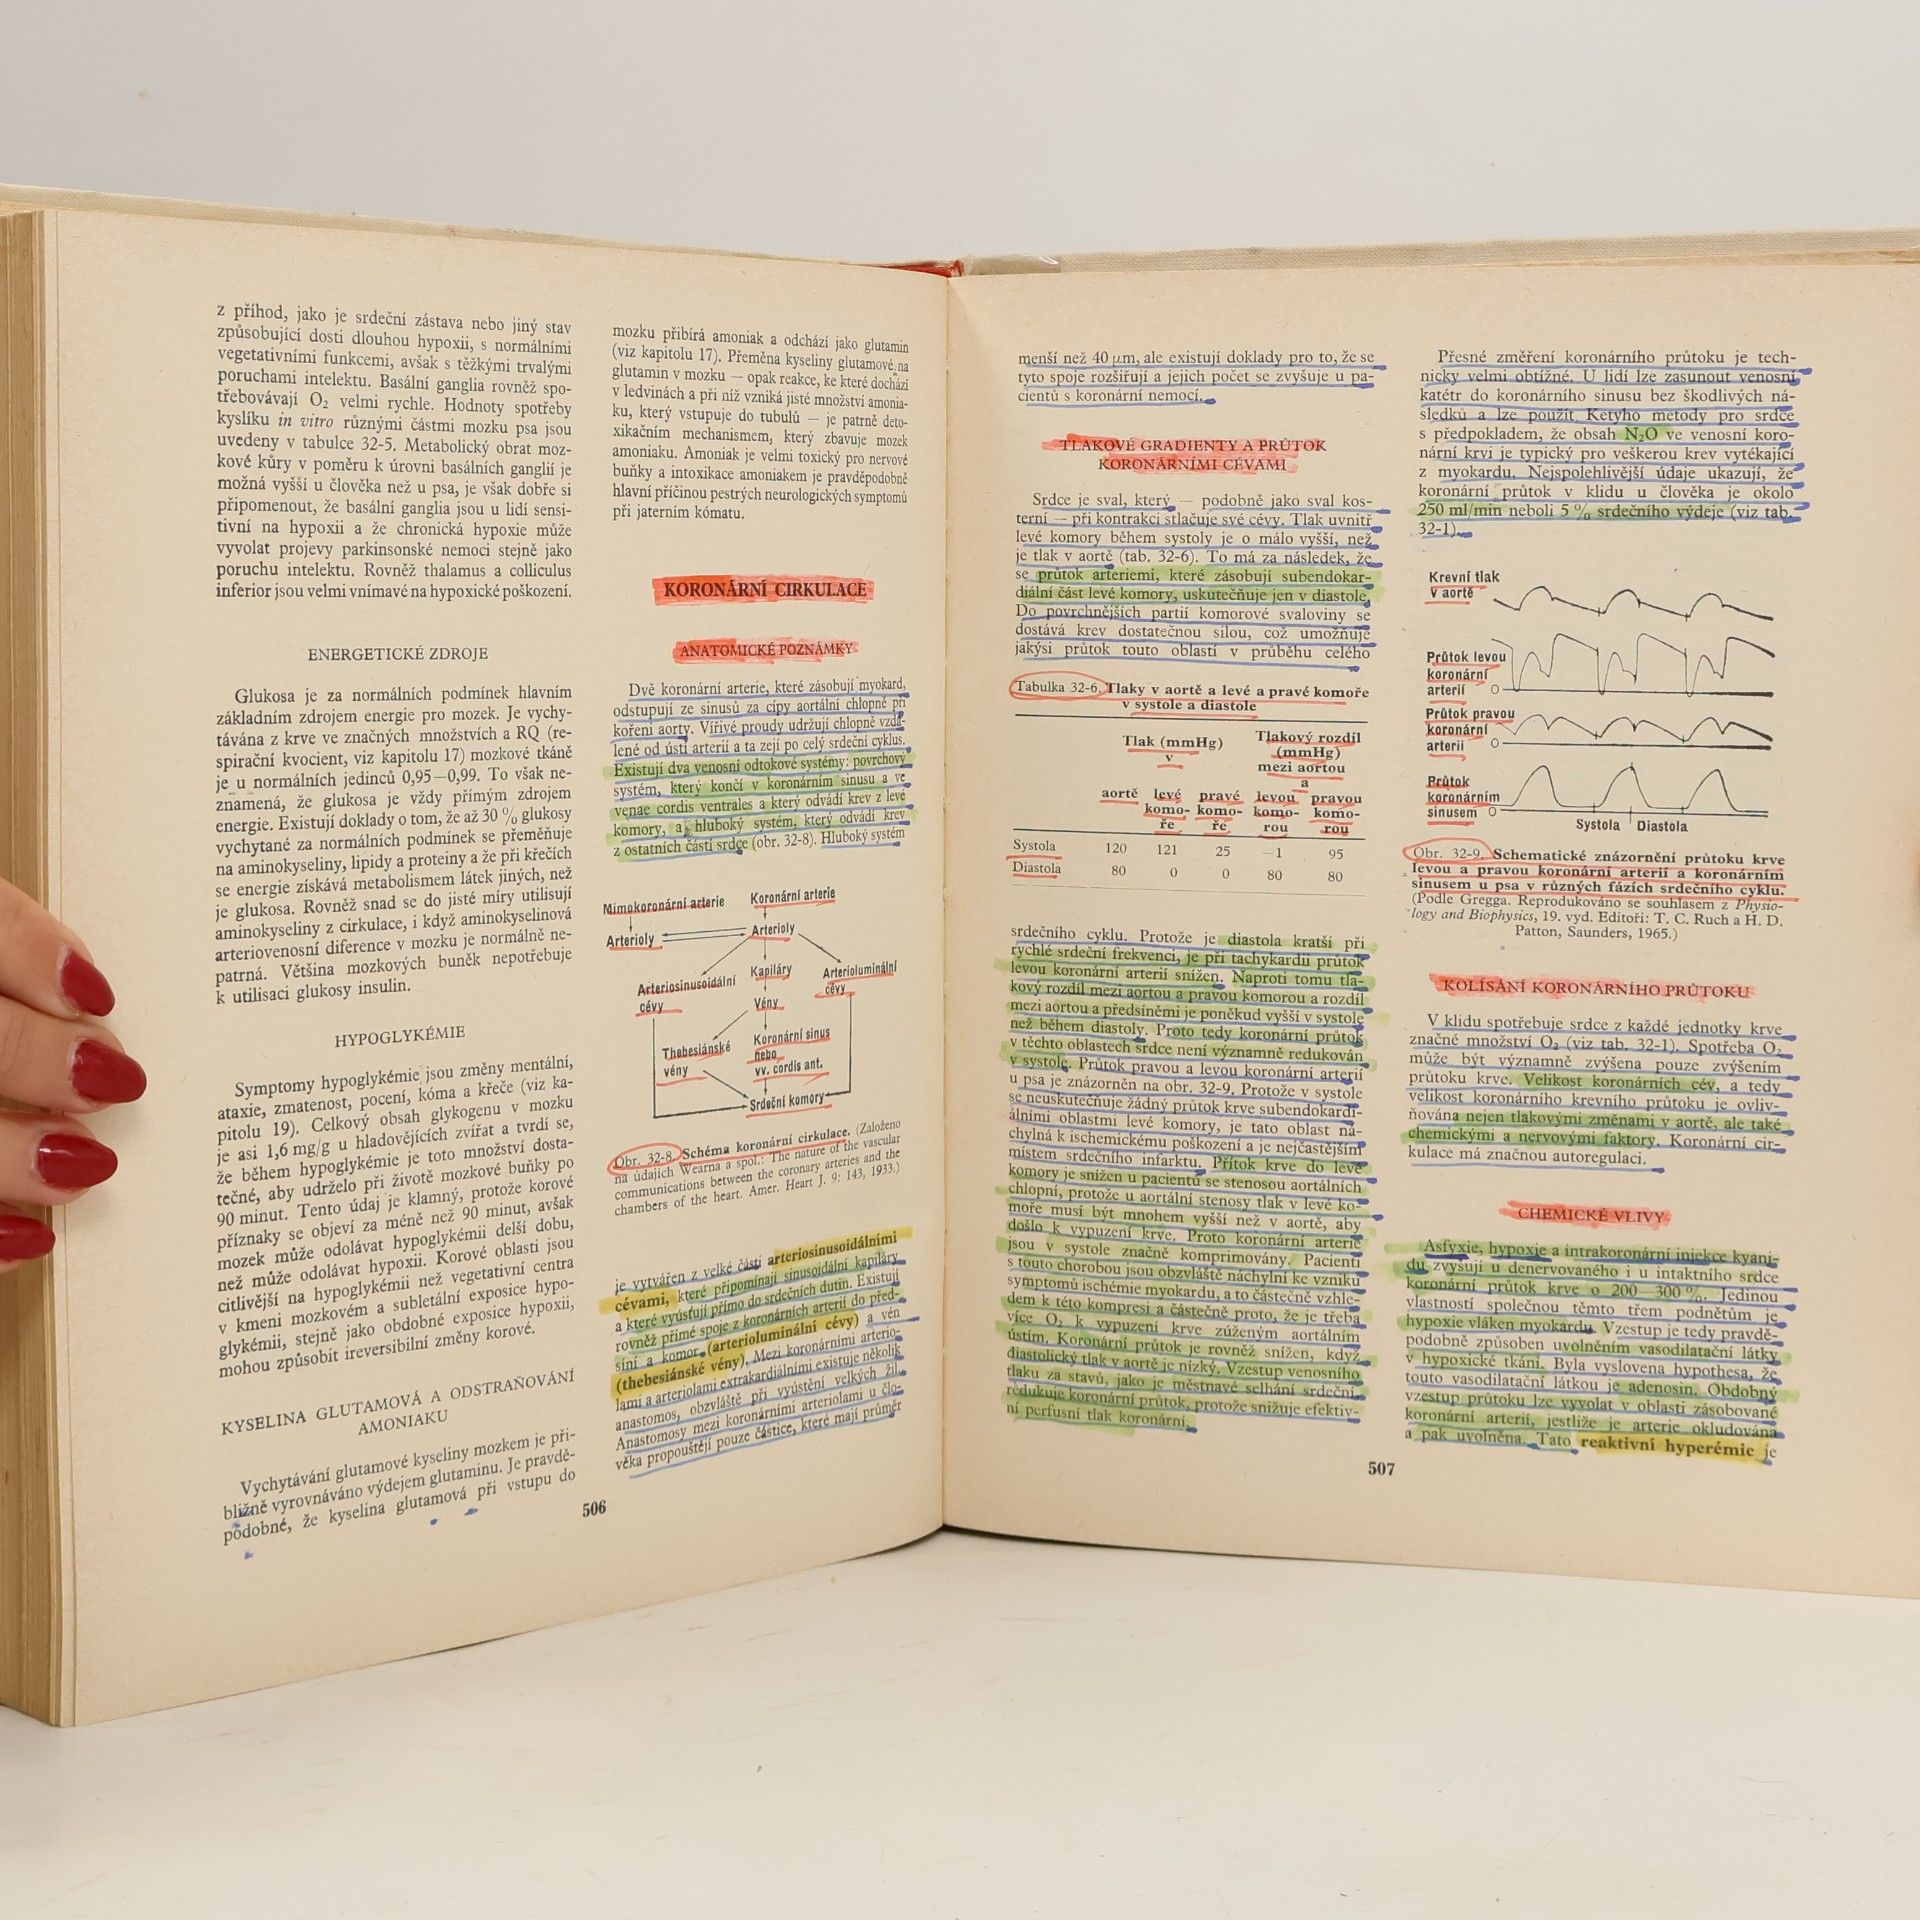 z příhod, jako je srdeční zástava nebo jiný stav
způsobující dosti dlouhou hypoxii, s normálními
vegetativními funkcemi, avšak s těžkými trvalými
poruchami intelektu. Basální ganglia rovněž spo-
třebovávají O₂ velmi rychle. Hodnoty spotřeby
kyslíku in vitro různými částmi mozku psa jsou
uvedeny v tabulce 32-5. Metabolický obrat moz-
kové kůry v poměru k úrovni basálních ganglií je
možná vyšší u člověka než u psa, je však dobře si
připomenout, že basální ganglia jsou u lidí sensi-
tivní na hypoxii a že chronická hypoxie může
vyvolat projevy parkinsonské nemoci stejně jako
poruchu intelektu. Rovněž thalamus a colliculus
inferior jsou velmi vnímavé na hypoxické poškození.
ENERGETICKÉ ZDROJE
Glukosa je za normálních podmínek hlavním
základním zdrojem energie pro mozek. Je vychy-
távána z krve ve značných množstvích a RQ (re-
spirační kvocient, viz kapitolu 17) mozkové tkáně
je u normálních jedinců 0,95—0,99. To však ne-
znamená, že glukosa je vždy přímým zdrojem
energie. Existují doklady o tom, že až 30 % glukosy
vychytané za normálních podmínek se přeměňuje
na aminokyseliny, lipidy a proteiny a že při křečích
se energie získává metabolismem látek jiných, než
je glukosa. Rovněž snad se do jisté míry utilisují
aminokyseliny z cirkulace, i když aminokyselinová
arteriovenosní diference v mozku je normálně ne-
patrná. Většina mozkových buněk nepotřebuje
k utilisaci glukosy insulin.
HYPOGLYKÉMIE
Symptomy hypoglykémie jsou změny mentální,
ataxie, zmatenost, pocení, kóma a křeče (viz ka-
pitolu 19). Celkový obsah glykogenu v mozku
je asi 1,6 mg/g u hladovějících zvířat a tvrdí se,
že během hypoglykémie je toto množství dosta-
tečné, aby udrželo při životě mozkové buňky po
90 minut. Tento údaj je klamný, protože korové
příznaky se objeví za méně než 90 minut, avšak
mozek může odolávat hypoglykémii delší dobu,
než může odolávat hypoxii. Korové oblasti jsou
citlivější na hypoglykémii než vegetativní centra
v kmeni mozkovém a subletální exposice hypo-
glykémii, stejně jako obdobné exposice hypoxii,
mohou způsobit ireversibilní změny korové.
KYSELINA GLUTAMOVÁ A ODSTRAŇOVÁNÍ
AMONIAKU
Vychytávání glutamové kyseliny mozkem je při-
bližně vyrovnáváno výdejem glutaminu. Je pravdě-
podobné, že kyselina glutamová při vstupu do
mozku přibírá amoniak a odchází jako glutamin
(viz kapitolu 17). Přeměna kyseliny glutamové na
glutamin v mozku — opak reakce, ke které dochází
v ledvinách a při níž vzniká jisté množství amonia-
ku, který vstupuje do tubulů — je patrně deto-
xikačním mechanismem, který zbavuje mozek
amoniaku. Amoniak je velmi toxický pro nervové
buňky a intoxikace amoniakem je pravděpodobně
hlavní příčinou pestrých neurologických symptomů
při jaterním kómatu.
KORONÁRNÍ CIRKULACE
ANATOMICKÉ POZNÁMKY
Dvě koronární arterie, které zásobují myokard,
odstupují ze sinusů za cípy aortální chlopně při
kořeni aorty. Vířivé proudy udržují chlopně vzdá-
lené od ústí arterií a ta zejí po celý srdeční cyklus.
Existují dva venosní odtokové systémy: povrchový
systém, který končí v koronárním sinusu a ve
venae cordis ventrales a který odvádí krev z levé
komory, a hluboký systém, který odvádí krev
z ostatních částí srdce (obr. 32-8). Hluboký systém
Mimokoronární arterie
Koronární arterie
Arterioly
Arterioly
Arteriosinusoidální
cévy
Kapiláry
Arterioluminální
cévy
Vény
Thebesiánské
vény
Koronární sinus
nebo
vv. cordis ant.
Srdeční komory
Obr. 32-8. Schéma koronární cirkulace. (Založeno
na údajích Wearna a spol.: The nature of the vascular
communications between the coronary arteries and the
chambers of the heart. Amer. Heart J. 9: 143, 1933.)
je vytvářen z velké části arteriosinusoidálními
cévami, které připomínají sinusoidální kapiláry
a které vyúsťují přímo do srdečních dutin. Existují
rovněž přímé spoje z koronárních arterií do před-
síní a komor (arterioluminální cévy) a vén
(thebesiánské vény). Mezi koronárními arterio-
lami a arteriolami extrakardiálními existuje několik
anastomos, obzvláště při vyústění velkých žil.
Anastomosy mezi koronárními arteriolami u člo-
věka propouštějí pouze částice, které mají průměr
506
menší než 40 μm, ale existují doklady pro to, že se
tyto spoje rozšiřují a jejich počet se zvyšuje u pa-
cientů s koronární nemocí.
TLAKOVÉ GRADIENTY A PRŮTOK
KORONÁRNÍMI CÉVAMI
Srdce je sval, který — podobně jako sval kos-
terní — při kontrakci stlačuje své cévy. Tlak uvnitř
levé komory během systoly je o málo vyšší, než
je tlak v aortě (tab. 32-6). To má za následek, že
se průtok arteriemi, které zásobují subendokar-
diální část levé komory, uskutečňuje jen v diastole.
Do povrchnějších partií komorové svaloviny se
dostává krev dostatečnou silou, což umožňuje
jakýsi průtok touto oblastí v průběhu celého
Tabulka 32-6. Tlaky v aortě a levé a pravé komoře
v systole a diastole
Tlak (mmHg)
v
Tlakový rozdíl
(mmHg)
mezi aortou
a
aortě levé komo-ře pravé komo-ře levou komo-rou pravou komo-rou
Systola 120 121 25 —1 95
Diastola 80 0 0 80 80
srdečního cyklu. Protože je diastola kratší při
rychlé srdeční frekvenci, je při tachykardii průtok
levou koronární arterií snížen. Naproti tomu tla-
kový rozdíl mezi aortou a pravou komorou a rozdíl
mezi aortou a předsíněmi je poněkud vyšší v systole
než během diastoly. Proto tedy koronární průtok
v těchto oblastech srdce není významně redukován
v systole. Průtok pravou a levou koronární arterií
u psa je znázorněn na obr. 32-9. Protože v systole
se neuskutečňuje žádný průtok krve subendokardi-
álními oblastmi levé komory, je tato oblast ná-
chylná k ischemickému poškození a je nejčastějším
místem srdečního infarktu. Přítok krve do levé
komory je snížen u pacientů se stenosou aortálních
chlopní, protože u aortální stenosy tlak v levé ko-
moře musí být mnohem vyšší než v aortě, aby
došlo k vypuzení krve. Proto koronární arterie
jsou v systole značně komprimovány. Pacienti
s touto chorobou jsou obzvláště náchylní ke vzniku
symptomů ischémie myokardu, a to částečně vzhle-
dem k této kompresi a částečně proto, že je třeba
více O₂ k vypuzení krve zúženým aortálním
ústím. Koronární průtok je rovněž snížen, když
diastolický tlak v aortě je nízký. Vzestup venosního
tlaku za stavů, jako je městnavé selhání srdeční,
redukuje koronární průtok, protože snižuje efektiv-
ní perfusní tlak koronární.
Přesné změření koronárního průtoku je tech-
nicky velmi obtížné. U lidí lze zasunout venosní
katétr do koronárního sinusu bez škodlivých ná-
sledků a lze použít Ketyho metody pro srdce
s předpokladem, že obsah N₂O ve venosní koro-
nární krvi je typický pro veškerou krev vytékající
z myokardu. Nejspolehlivější údaje ukazují, že
koronární průtok v klidu u člověka je okolo
250 ml/min neboli 5 % srdečního výdeje (viz tab.
32-1).
Krevní tlak
v aortě
Průtok levou
koronární
arterií 0
Průtok pravou
koronární
arterií 0
Průtok
koronárním
sinusem 0
Systola Diastola
Obr. 32-9. Schematické znázornění průtoku krve
levou a pravou koronární arterií a koronárním
sinusem u psa v různých fázích srdečního cyklu.
(Podle Gregga. Reprodukováno se souhlasem z Physio-
logy and Biophysics, 19. vyd. Editoři: T. C. Ruch a H. D.
Patton, Saunders, 1965.)
KOLÍSÁNÍ KORONÁRNÍHO PRŮTOKU
V klidu spotřebuje srdce z každé jednotky krve
značné množství O₂ (viz tab. 32-1). Spotřeba O₂
může být významně zvýšena pouze zvýšením
průtoku krve. Velikost koronárních cév, a tedy
velikost koronárního krevního průtoku je ovliv-
ňována nejen tlakovými změnami v aortě, ale také
chemickými a nervovými faktory. Koronární cir-
kulace má značnou autoregulaci.
CHEMICKÉ VLIVY
Asfyxie, hypoxie a intrakoronární injekce kyani-
du zvyšují u denervovaného i u intaktního srdce
koronární průtok krve o 200—300 %. Jedinou
vlastností společnou těmto třem podnětům je
hypoxie vláken myokardu. Vzestup je tedy pravdě-
podobně způsoben uvolněním vasodilatační látky
v hypoxické tkáni. Byla vyslovena hypothesa, že
touto vasodilatační látkou je adenosin. Obdobný
vzestup průtoku lze vyvolat v oblasti zásobované
koronární arterií, jestliže je arterie okludována
a pak uvolněna. Tato reaktivní hyperémie je
507